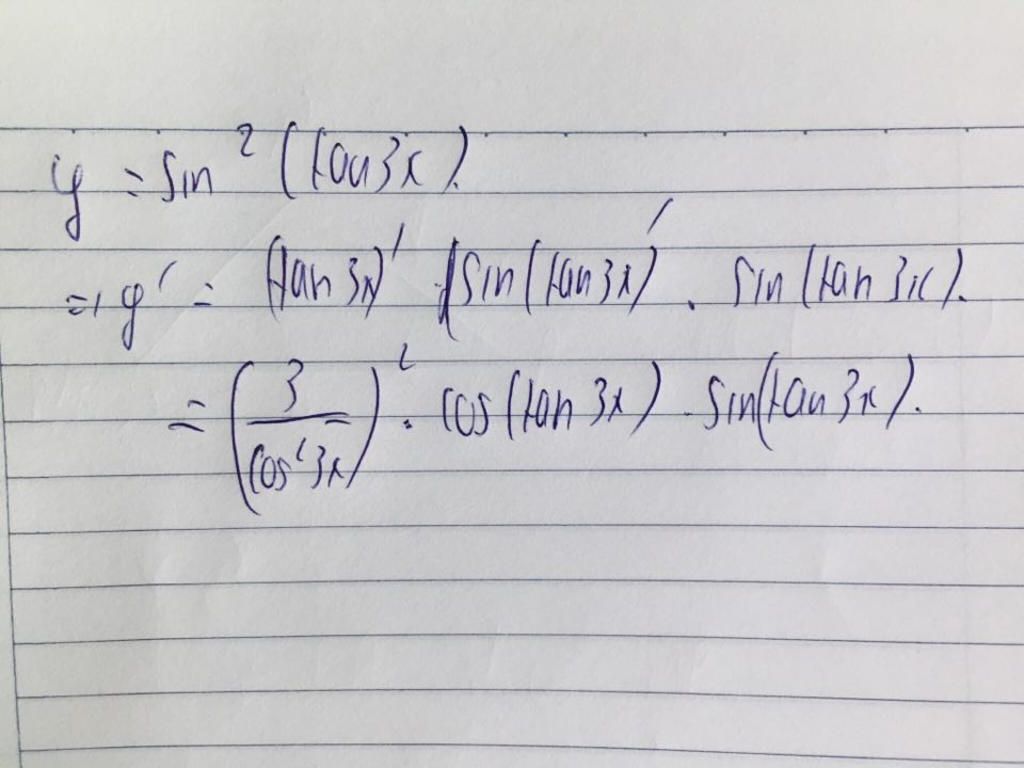 y = sin² (tan 3x).
=> y' = (tan 3x)' . (sin(tan 3x)' . sin(tan 3x).
= (3/cos²3x)² . cos(tan 3x) . sin(tan 3x).